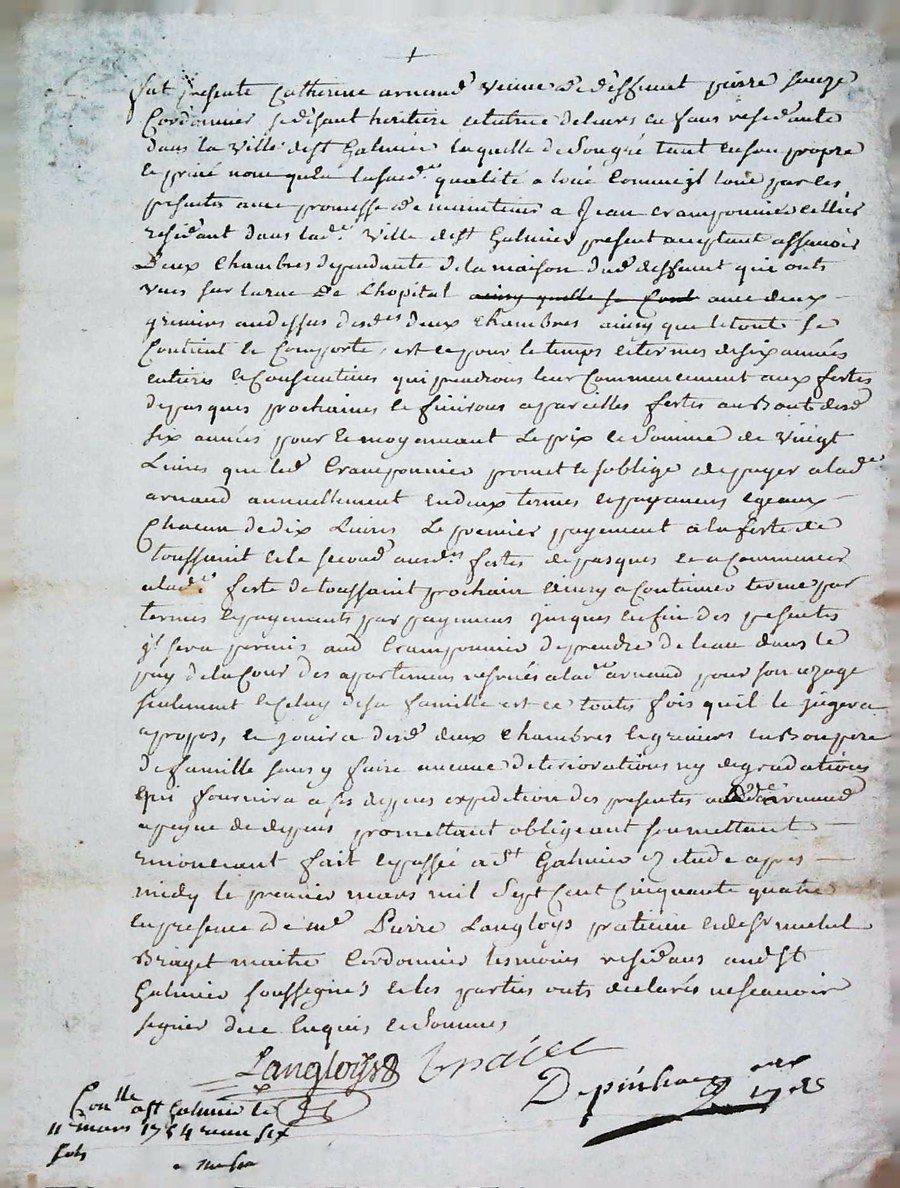 fut presente Catherine arnaud veuve de deffunt pierre
Cordonnier se disant heritiere et tutrice de leurs enfans residante
dans la ville de st Galmier laquelle de son gré tant en son propre
et privé nom qu'en lasusd.e qualité a loué comme jl loue par les
presentes avec promesse de maintenir a Jean cramponnier cellier
residant dans lad.e ville de st Galmier present acceptant assavoir
Deux chambres dependante de la maison dud deffunt qui onts
vues sur la rue de L'hopital avec deux
greniers audessus desd.es deux chambres ainsy que le tout se
Contient et Comporte, est ce pour le temps et termes de six années
entieres et Consecutives qui prendrons leur Commencement aux festes
de pasques prochaines et finirons a pareilles festes au bout desd
six années pour et moyennant Le prix et Somme de vingt
Livres que led Cramponnier promet et soblige de payer a lad.e
arnaud annuellement en deux termes et payemens egeaux
Chacun de dix Livres Le premier payement a la feste de
toussaint et le second ausd.es festes de pasques et a Commencer
a lad.e feste de toussaint prochain et ainsy a Continuer terme par
termes et payements par payemens jusques en fin des presentes
jl sera permis aud Cramponnier de prendre de leau dans le
puy de la Cour des apartemens reservés a lad.e arnaud pour son uzage
seulement et Celuy de sa famille est ce toutes fois quil le jugera
apropos, et jouira desd.es deux chambres et greniers en Bon pere
de famille sans y faire aucune deteriorations ny degradations
qui fournira a ses depens expedition des presentes a lad.e arnaud
a peyne de depens promettant obligeant soumettant
renonceant fait et passé a St Galmier etude apres
midy le premier mars mil sept cent cinquante quatre
en presence de m.e Pierre Langloys praticien et de sr michel
Briget maitre Cordonnier temoins residans aud st
Galmier soussignés et les parties onts declarés ne scavoir
signer de ce Enquis et Sommés
Langloys
Con.lle a st Galmier le
11 mars 1754 reçu six
sols